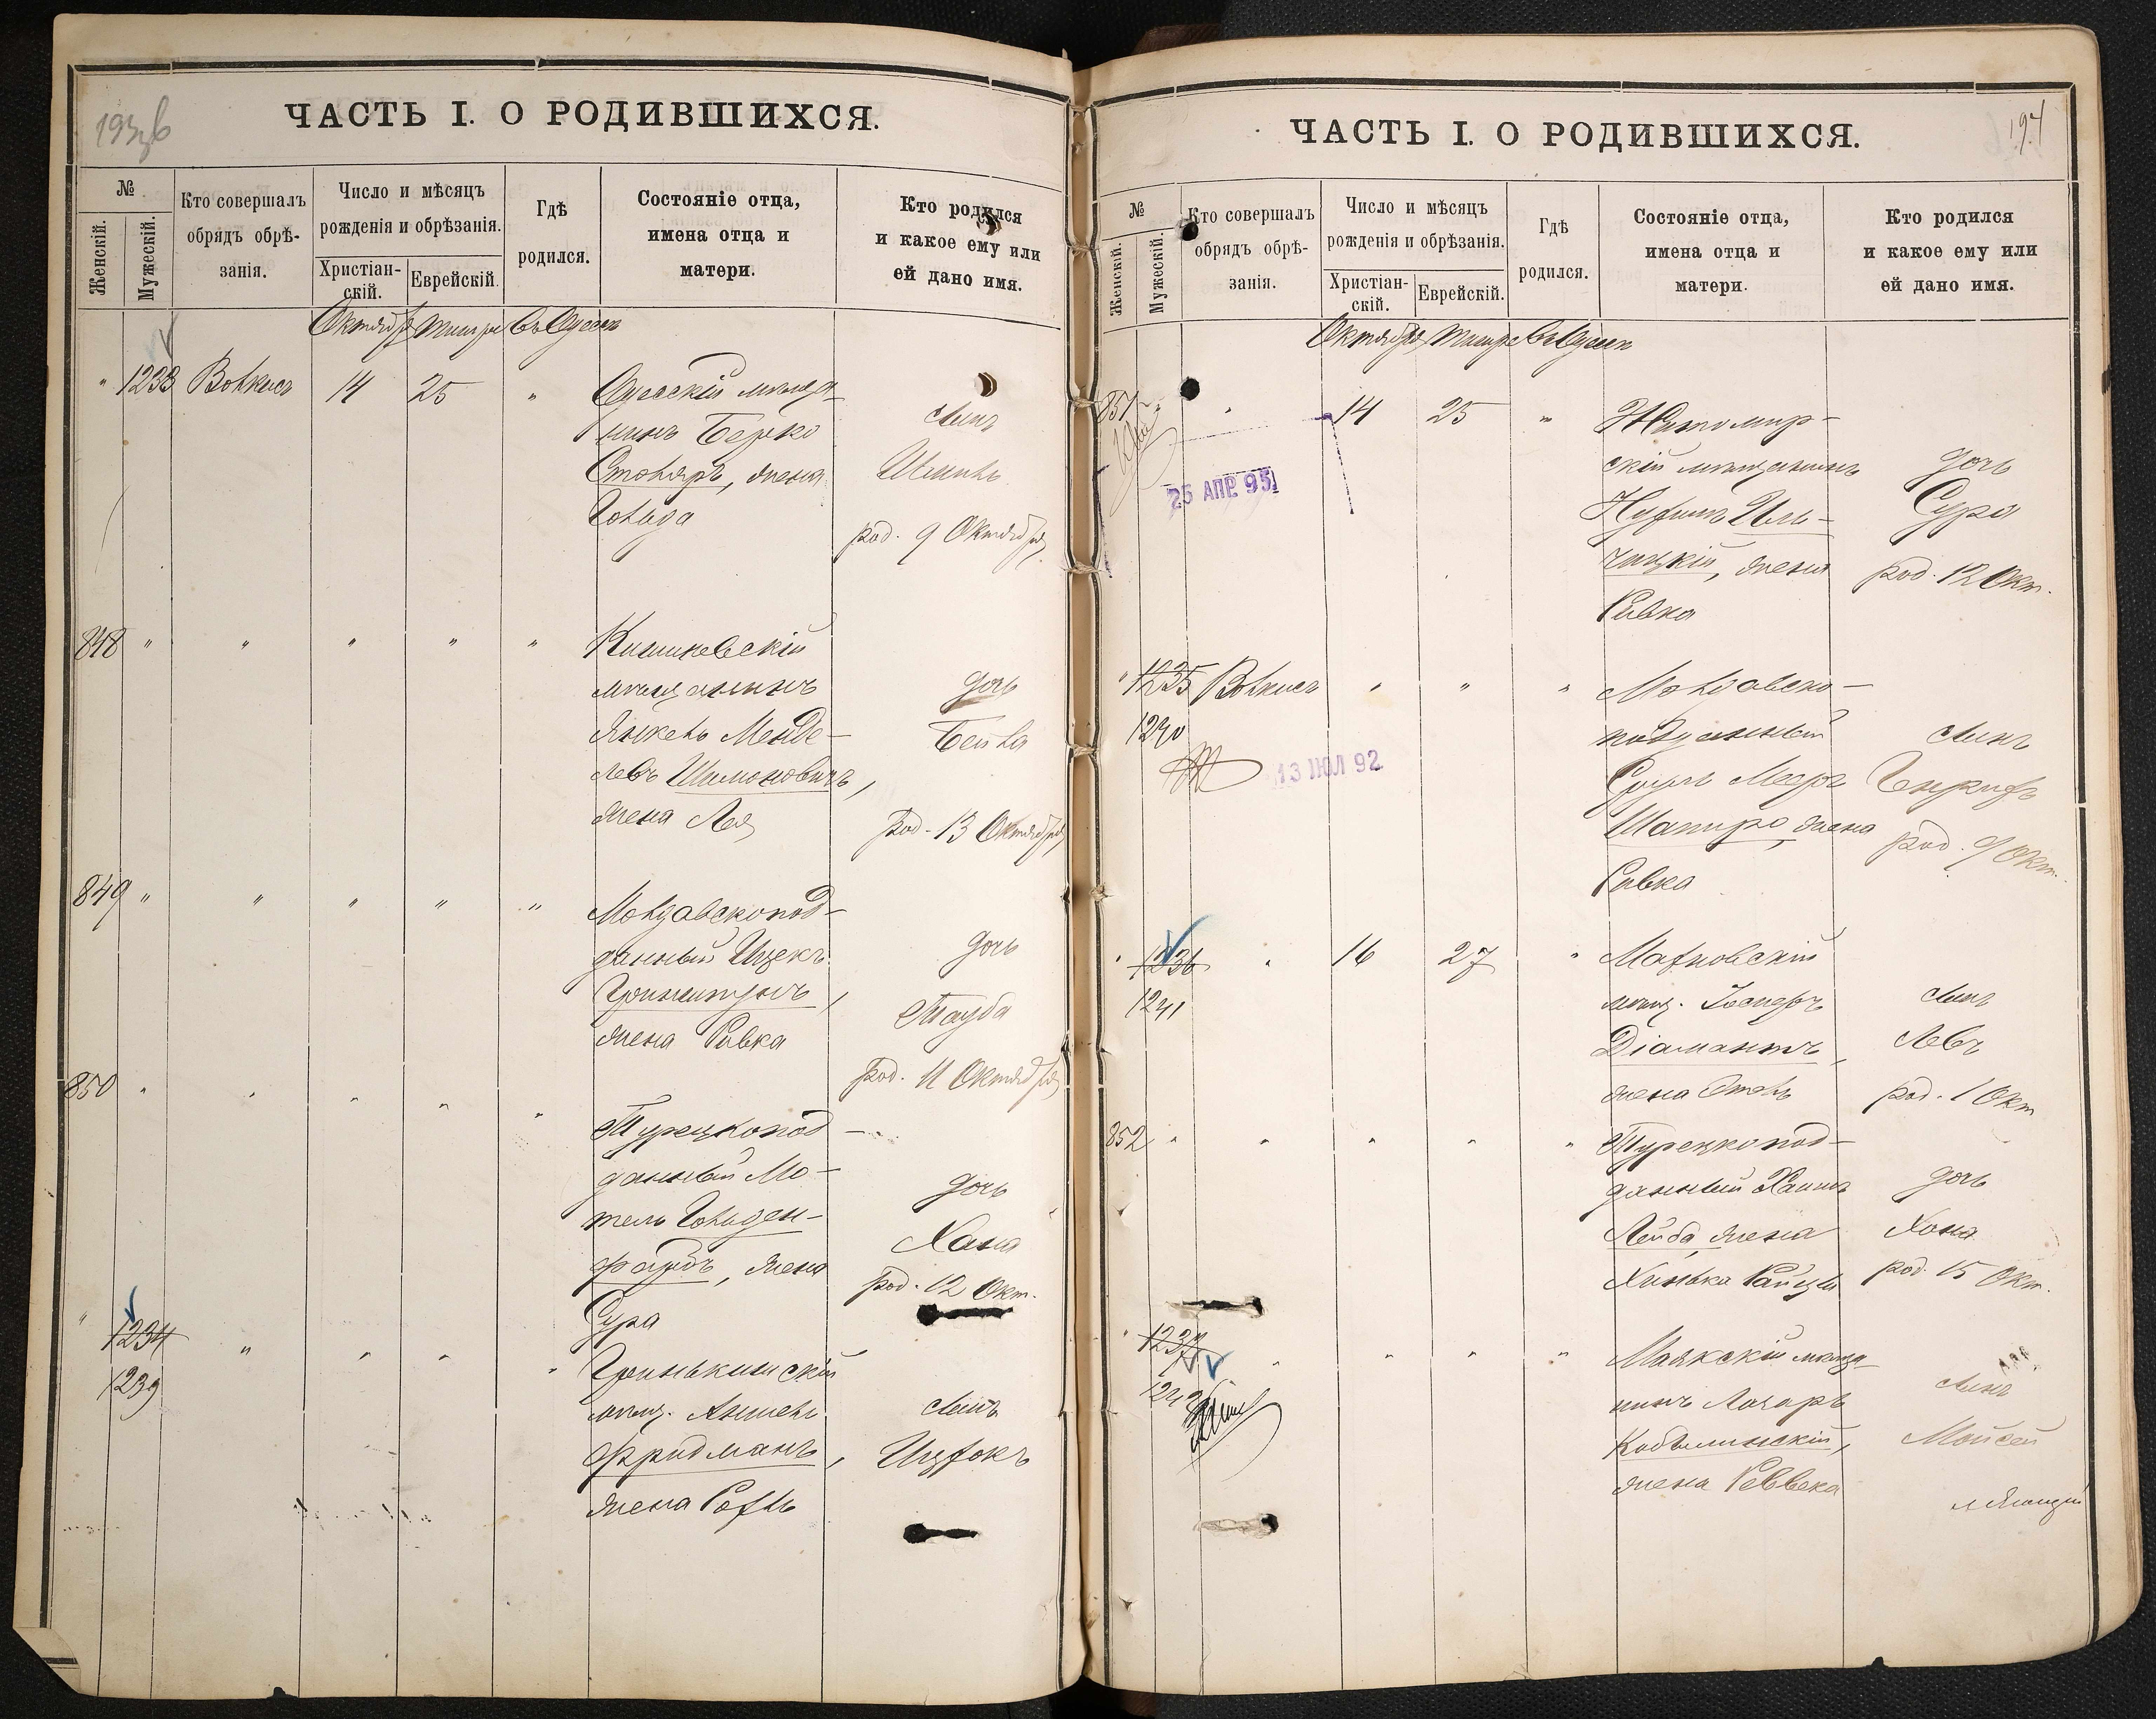 193об
ЧАСТЬ I. О РОДИВШИХСЯ.
№
Женскій.
Мужескій.
Кто совершалъ
обрядъ обрѣ-
занія.
Число и мѣсяцъ
рожденія и обрѣзанія.
Христіан-
скій.
Еврейскій.
Гдѣ
родился.
Состояніе отца,
имена отца и
матери.
Кто родился
и какое ему или
ей дано имя.
Октября Тишри въ Одессѣ
" 1233 Волкисъ 14 25 " Одесскій мѣща-
нинъ Берко
Столяръ, жена
Гольда
сынъ
род. 9 Октября
848 " " " " " Кишиневскій
мѣщанинъ
Янкель Менде-
левъ Шимоновичъ,
жена Лея
дочь
Бейла
род. 13 Октября
849 " " " " " Молдавскопод-
данный Ицекъ
Гринштунъ,
жена Ривка
дочь
Тауба
род. 11 Октября
850 " " " " " Турецкопод-
данный Мо-
тель Гольден-
фарбъ, жена
Сура
дочь
Хана
род. 12 Окт.
" 1234 " " " "
1239
Гринькишскій
мѣщ. Аншель
Фридманъ,
жена Рохль
сынъ
Ицхокъ
194
ЧАСТЬ I. О РОДИВШИХСЯ.
№
Женскій.
Мужескій.
Кто совершалъ
обрядъ обрѣ-
занія.
Число и мѣсяцъ
рожденія и обрѣзанія.
Христіан-
скій.
Еврейскій.
Гдѣ
родился.
Состояніе отца,
имена отца и
матери.
Кто родился
и какое ему или
ей дано имя.
Октября Тишри въ Одессѣ
851 " " 14 25 " Житомир-
скій мѣщанинъ
Нухимъ Иль-
чицкій, жена
Ривка
25 АПР. 95
дочь
Сура
род. 12 Окт.
" 1235 Волкисъ " " " Молдавско-
1240
подданный
Сруль Мееръ
Шапиро, жена
Ривка
13 ІЮЛ 92
сынъ
род. 9 Окт.
" 1236 " 16 27 "
1241
мѣщ. Іосифъ
Діамантъ,
жена Этель
сынъ
Левъ
род. 1 Окт
852 " " " " " Турецкопод-
данный Хаимъ
Лейба, жена
Хинька Райзля
дочь
Хона
род. 15 Окт.
" 1237 " " " " Маякскій мѣща-
1242
нинъ Лазарь
Кобылинскій,
жена Ревека
сынъ
Мойсей